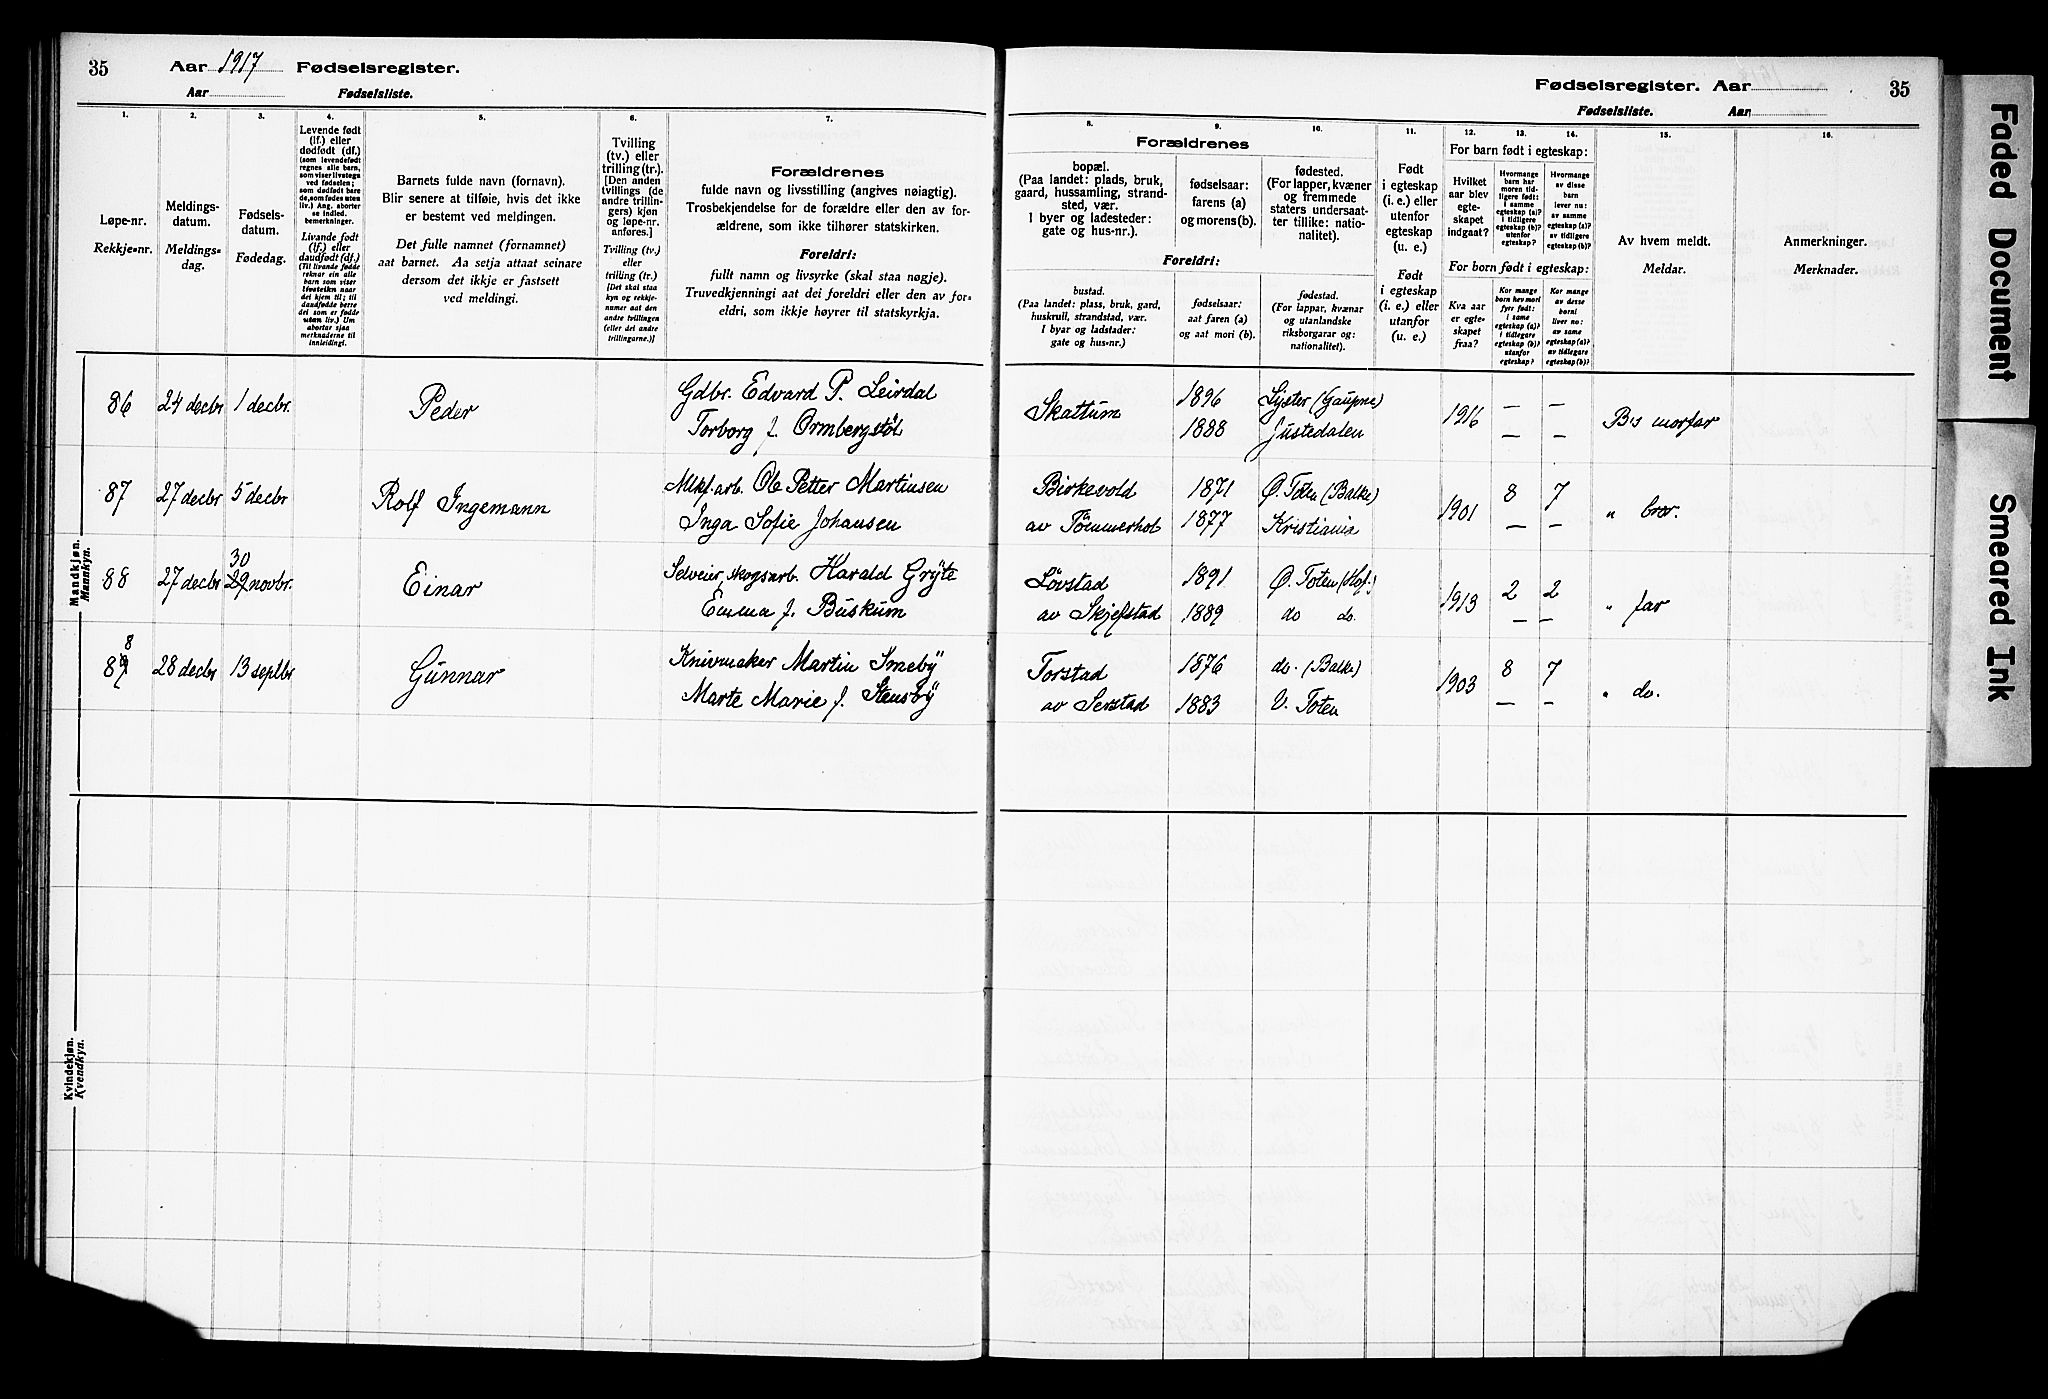 35 Aar 1917 Fødselsregister.
Aar Fødselsliste.
Fødselsregister. Aar 35
Fødselsliste. Aar
1. 2. 3. 4. 5. 6. 7. 8. 9. 10. 11. 12. 13. 14. 15. 16.
Løpe-nr.
Rekkje=nr.
Meldings-
datum.
Meldings=
dag.
Fødsels-
datum.
Fødedag.
Levende født
(lf.) eller
dødfødt (df.)
(som levendefødt
regnes alle barn,
som viser livstegn
ved fødselen;
som dødfødt bare
de, som fødes uten
liv.) Ang. aborter
se indled.
bemerkninger.
Livande født
(lf.) eller
daudfødt (df.)
(Til livande fødde
reknar ein alle
barn som viser
livsteikn naar
dei kjem til; til
daudfødde berre
dei som er fødde
utan liv.) Um
abortar sjaa
merknaderne til
innleidingi.
Barnets fulde navn (fornavn).
Blir senere at tilføie, hvis det ikke
er bestemt ved meldingen.
Det fulle namnet (fornamnet)
aat barnet. Aa setja attaat seinare
dersom det ikkje er fastsett
ved meldingi.
Tvilling
(tv.) eller
trilling (tr.).
[Den anden
tvillings (de
andre trillin-
gers) kjøn
og løpe-nr.
anføres.]
Tvilling (tv.)
eller
trilling (tr.)
[Det skal staa
kyn og rekkje-
numer aat den
andre tvillingen
(eller dei andre
trillingarne.)]
Forældrenes
fulde navn og livsstilling (angives nøiagtig).
Trosbekjendelse for de forældre eller den av for-
ældrene, som ikke tilhører statskirken.
Foreldri:
fullt namn og livsyrke (skal staa nøgje).
Truvedkjenningi aat dei foreldri eller den av for=
eldri, som ikkje høyrer til statskyrkja.
Forældrenes
bopæl.
(Paa landet: plads, bruk,
gaard, hussamling, strand-
sted, vær.
I byer og ladesteder:
gate og hus-nr.).
fødselsaar:
farens (a)
og morens(b).
fødested.
(For lapper, kvæner
og fremmede
staters undersaat-
ter tillike: natio-
nalitet).
Foreldri:
bustad.
(Paa landet: plass, bruk, gard,
huskrull, strandstad, vær.
I byar og ladstader:
gate og hus=nr.)
fødselsaar:
aat faren (a)
og aat mori (b).
fødestad.
(For lappar, kvænar
og utanlandske
riksborgarar og:
nationalitet).
Født
i egteskap
(i. e.) eller
utenfor
egteskap
(u. e.)
Født
i egteskap
(i. e.) eller
utanfor
(u. e.)
For barn født i egteskap:
Hvilket
aar blev
egte-
skapet
indgaat?
Hvormange
barn har
moren tid-
ligere født:
i samme
egteskap (a)?
i tidligere
egteskap (b)?
utenfor
egteskap?
Hvormange
av disse
barn
lever nu:
av samme
egteskap (a)?
av tidligere
egteskap (b)?
For born født i egteskap:
Kva aar
er egte=
skapet
fraa?
Kor mange
born hev mori
fyrr født:
i same
egteskap (a)?
i tidlegare
egteskap (b)?
utanfor
egteskap?
Kor mange
av desse
borni
liver no:
av same
egteskap (a)?
av tidlegare
egteskap (b)?
Av hvem meldt.
Meldar.
Anmerkninger.
Merknader.
Mandkjøn.
Mannkyn.
86 24 decbr 1 decbr. Peder Gdbr. Edvard P. Leirdal Skattum 1896 Lyster (Gaupne) 1916 — — B's morfar
Torborg f. Ormbergstøl 1888 Justedalen — —
87 27 decbr 5 decbr Rolf Ingemann Mlkf.arb. Ole Petter Martinsen Birkevold 1871 Ø. Toten (Balke) 1901 8 7 " bror.
Inga Sofie Johansen av Tømmerhol 1877 Kristiania — —
30
88 27 decbr 29 novbr. Einar Selveier, skogsarb. Harald Gryte Løvstad 1891 Ø. Toten (Hof.) 1913 2 2 " far
Emma f. Buskum av Skjefstad 1889 do do. — —
8
89 28 decbr 13 septbr Gunnar Knivmaker Martin Smeby Torstad 1876 do. (Balke) 1903 8 7 " do.
Marte Marie f. Stensby av Serstad 1883 V. Toten — —
Kvindekjøn.
Kvendkyn.
Faded Document
Smeared Ink